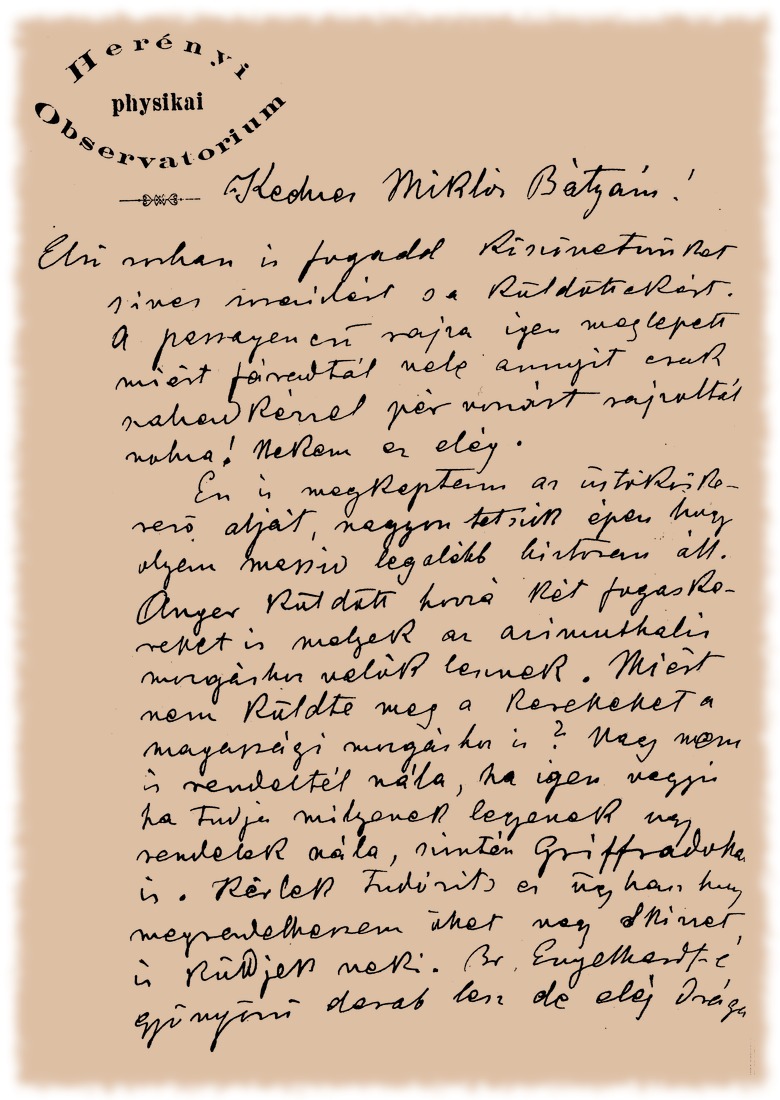 Herényi
physikai
Observatorium
Kedves Miklós Bátyám!
Első sorban is fogadd köszönetünket
szives soraidért s a küldöttekért.
A passagencső rajza igen meglepett
miért fáradtál vele annyit csak
szabad kézzel pár vonást rajzoltál
volna! Nekem ez elég.
En is megkaptam az üstököske-
reső alját, nagyon tetszik épen hogy
olyan massiv legalább biztosan áll.
Anger küldött hozzá két fogaske-
reket is melyek az azimuthalis
mozgáshoz valók lesznek. Miért
nem küldte meg a kerekeket a
magassági mozgáshoz is? Vagy nem
is rendeltél nála, ha igen vagyis
ha tudja milyenek legyenek ugy
rendelek nála, szintén Griffradokat
is. Kérlek tudósits ez ügyben hogy
megrendelhessem őket vagy skizzet
is küldjek neki. Br. Engelhardt-é
gyönyörü darab lesz de elég drága